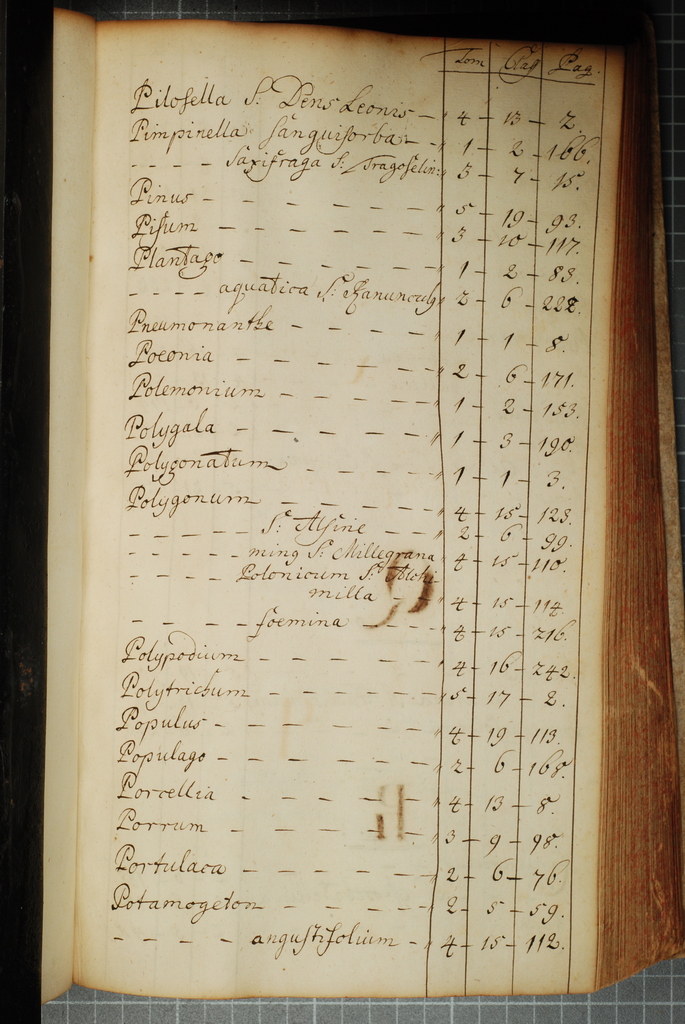 Tom Clas Pag.
Pilosella S: Dens Leonis — " 4 — 13 — 2.
Pimpinella Sanguisorba — " 1 — 2 — 166.
- - - - Saxifraga S: Tragoselin: " 3 — 7 — 15.
Pinus - - - - - - " 5 — 19 — 93.
Pisum - - - - - - " 3 — 10 — 117.
Plantago - - - - - " 1 — 2 — 83.
- - - - aquatica S: Ranuncul9 2 — 6 — 222.
Pneumonanthe - - - - " 1 — 1 — 8.
Poeonia - - - - - " 2 — 6 — 171.
Polemonium - - - - " 1 — 2 — 153.
Polygala - - - - - " 1 — 3 — 190.
Polygonatum - - - - " 1 — 1 — 3.
Polygonum - - - - " 4 — 15 — 123.
- - - - - S: Alsine - - " 2 — 6 — 99.
- - - - - ming S: Millegrana 4 — 15 — 110.
- - - - Polonicum S: Alchi
milla - - " 4 — 15 — 114.
- - - - foemina - - - " 4 — 15 — 216.
Polypodium - - - - " 4 — 16 — 242.
Polytrichum - - - - " 5 — 17 — 2.
Populus - - - - - - " 4 — 19 — 113.
Populago - - - - - - " 2 — 6 — 168.
Porcellia - - - - - " 4 — 13 — 8.
Porrum - - - - - " 3 — 9 — 98.
Portulaca - - - - - " 2 — 6 — 76.
Potamogeton - - - - " 2 — 5 — 59.
- - - - angustifolium - " 4 — 15 — 112.